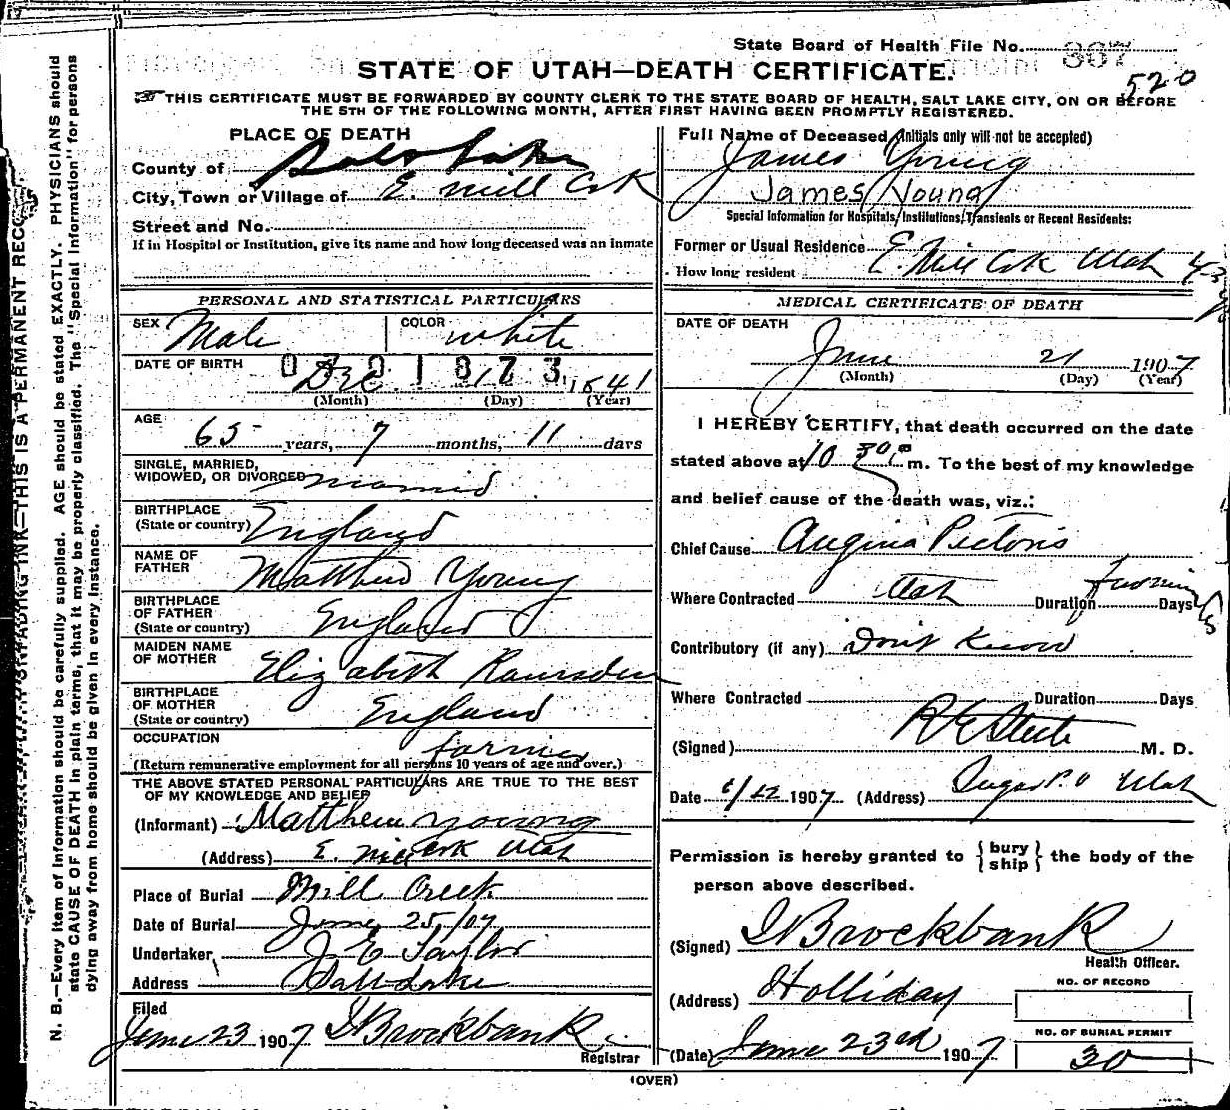 State Board of Health File No. 367
520
STATE OF UTAH—DEATH CERTIFICATE.
THIS CERTIFICATE MUST BE FORWARDED BY COUNTY CLERK TO THE STATE BOARD OF HEALTH, SALT LAKE CITY, ON OR BEFORE
THE 5TH OF THE FOLLOWING MONTH, AFTER FIRST HAVING BEEN PROMPTLY REGISTERED.
N. B.—Every item of information should be carefully supplied. AGE should be stated EXACTLY. PHYSICIANS should
state CAUSE OF DEATH in plain terms, that it may be properly classified. The "Special Information" for persons
dying away from home should be given in every instance.
INK—THIS IS A PERMANENT RECO
PLACE OF DEATH
County of Salt Lake
City, Town or Village of E. Mill Crk
Street and No.
If in Hospital or Institution, give its name and how long deceased was an inmate
PERSONAL AND STATISTICAL PARTICULARS
SEX Male COLOR White
DATE OF BIRTH Dec 1841
(Month) (Day) (Year)
AGE 65 years, 7 months, 11 days
SINGLE, MARRIED,
WIDOWED, OR DIVORCED married
BIRTHPLACE
(State or country) England
NAME OF
FATHER Matthew Young
BIRTHPLACE
OF FATHER
(State or country) England
MAIDEN NAME
OF MOTHER Elizabeth Ramsden
BIRTHPLACE
OF MOTHER
(State or country) England
OCCUPATION farming
(Return remunerative employment for all persons 10 years of age and over.)
THE ABOVE STATED PERSONAL PARTICULARS ARE TRUE TO THE BEST
OF MY KNOWLEDGE AND BELIEF
(Informant) Matthew Young
(Address) E. Mill Crk Utah
Place of Burial Mill Creek
Date of Burial June 25/07
Undertaker J E Taylor
Address Salt Lake
Filed
June 23 1907 Brockbank
Registrar
Full Name of Deceased (Initials only will not be accepted)
James Young
James Young
Special Information for Hospitals, Institutions, Transients or Recent Residents:
Former or Usual Residence E. Mill Crk Utah
How long resident
MEDICAL CERTIFICATE OF DEATH
DATE OF DEATH
June 21 1907
(Month) (Day) (Year)
I HEREBY CERTIFY, that death occurred on the date
stated above at 10 30 p m. To the best of my knowledge
and belief cause of the death was, viz.:
Chief Cause Angina Pectoris
Where Contracted Utah Duration Days
Contributory (if any) Dont Know
Where Contracted Duration Days
(Signed) M. D.
Date 6/22 1907 (Address) Sugar P.O Utah
Permission is hereby granted to {bury
ship} the body of the
person above described.
(Signed) Brockbank
Health Officer.
(Address) Holliday
NO. OF RECORD
NO. OF BURIAL PERMIT
(Date) June 23rd 1907 30
(OVER)